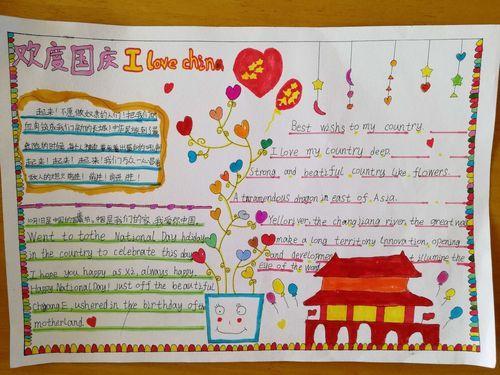 欢度国庆 I love china
起来！不愿做奴隶的人们！把我们的
血肉筑成我们新的长城！中华民族到了最
危险的时候
起来！起来！起来！我们万众一心冒着
敌人的炮火前进！前进！前进！进！
10月1日是中国的国庆节，中国是我们的家，我爱你中国
Went to tothe National Day holiday
in the country to celebrate this day
I hope you happy as x2, always happy
Happy National Day! Just off the beautiful
ushered in the birthday of
motherland.
Best wishs to my country.
I love my country deep.
Strong and beatiful country like flowers.
A tramendous dragon in east of Asia.
Yellori ver the changjiang river the great wea
make a long territony Lnnovation, opening
and development
t illumine the
eye of the word